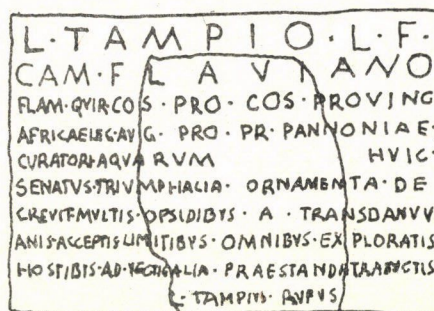 L·TAMPIO·L·F·
CAM·FLAVIANO
FLAM·QVIR·COS·PRO·COS·PROVINC
AFRICAE LEG·AVG·PRO·PR·PANNONIAE·
CVRATORI·AQVARVM HVIC·
SENATVS·TRIVMPHALIA·ORNAMENTA·DE
CREVIT·MVLTIS·OPSIDIBVS·A·TRANSDANVV
ANIS·ACCEPTIS LIMITIBVS·OMNIBVS·EXPLORATIS
HOSTIBVS·AD·VECTIGALIA·PRAESTANDA TRADVCTIS
L·TAMPIVS·RVFVS